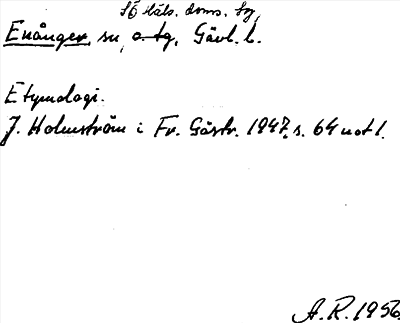 SÖ Häls. doms. sg,
Enånger, sn, o. tg, Gävl. l.
Etymologi.
J. Holmström i Fr. Gästr. 1947, s. 64 not 1.
A. R. 1956